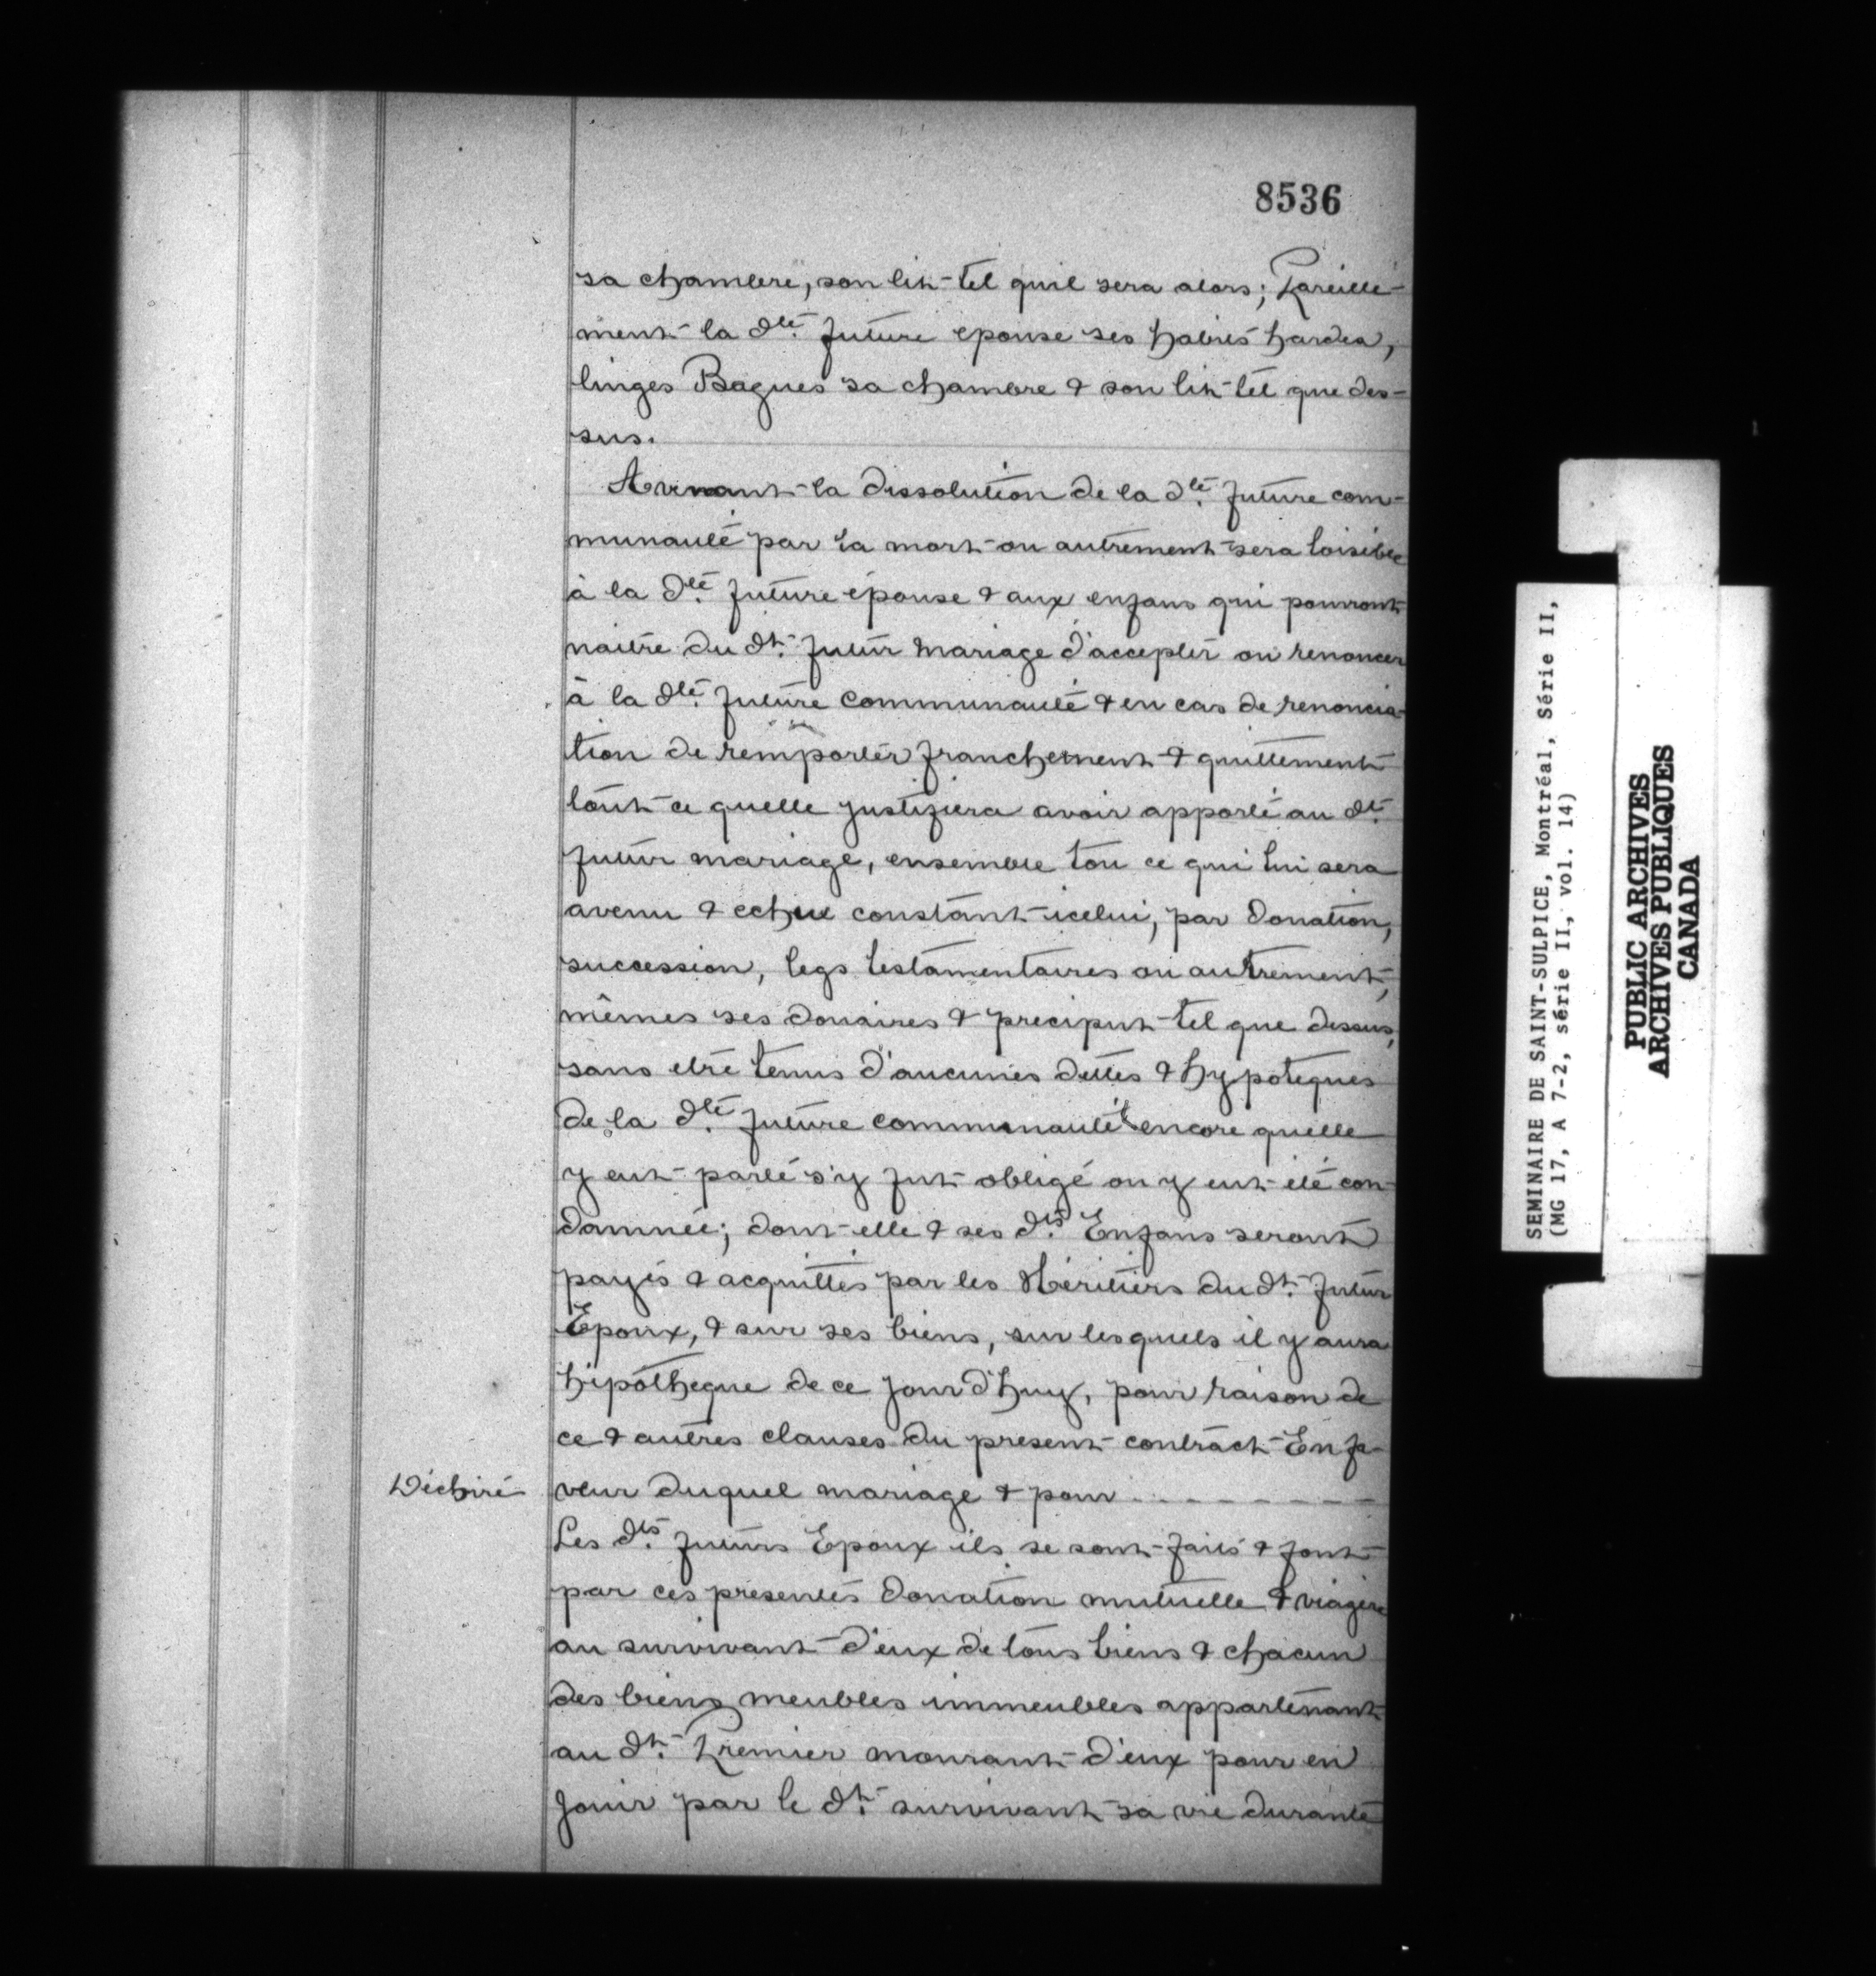 8536
sa chambre, son lit tel quil sera alors; Pareille-
ment la dte. future epouse ses habits hardes,
linges Bagues sa chambre & son lit tel que des-
sus.
Avenant la dissolution de la dte. future com-
munauté par la mort ou autrement sera loisible
à la dte. future épouse & aux enfans qui pourront
naitre du dt. futur mariage d'accepter ou renoncer
à la dte. future communauté & en cas de renoncia-
tion de remporter franchement & quittement
tout ce quelle justifiera avoir apporté au dt.
futur mariage, ensemble tou ce qui lui sera
avenu & echue constant icelui, par donation,
succession, legs testamentaires ou autrement,
mêmes ses douaires & preciput tel que dessus,
sans etre tenus d'aucunes dettes & hypoteques
de la dte. future communauté encore quelle
y eut parlé s'y fut obligé ou y eut été con-
damnée; dont elle & ses dts. Enfans seront
payés & acquittés par les Héritiers du dt. futur
Epoux, & sur ses biens, sur lesquels il y aura
hipotheque de ce jour d'huy, pour raison de
ce & autres clauses du present contract En fa-
Déchiré
veur duquel mariage & pour - - - - - - - -
Les dts. futurs Epoux ils se sont faits & font
par ces presentes donation mutuelle & viagere
au survivant d'eux de tous biens & chacun
des biens meubles immeubles appartenant
au dt. Premier mourant d'eux pour en
jouir par le dt. survivant sa vie durante
SEMINAIRE DE SAINT-SULPICE, Montréal, Série II,
(MG 17, A 7-2, série II, vol. 14)
PUBLIC ARCHIVES
ARCHIVES PUBLIQUES
CANADA